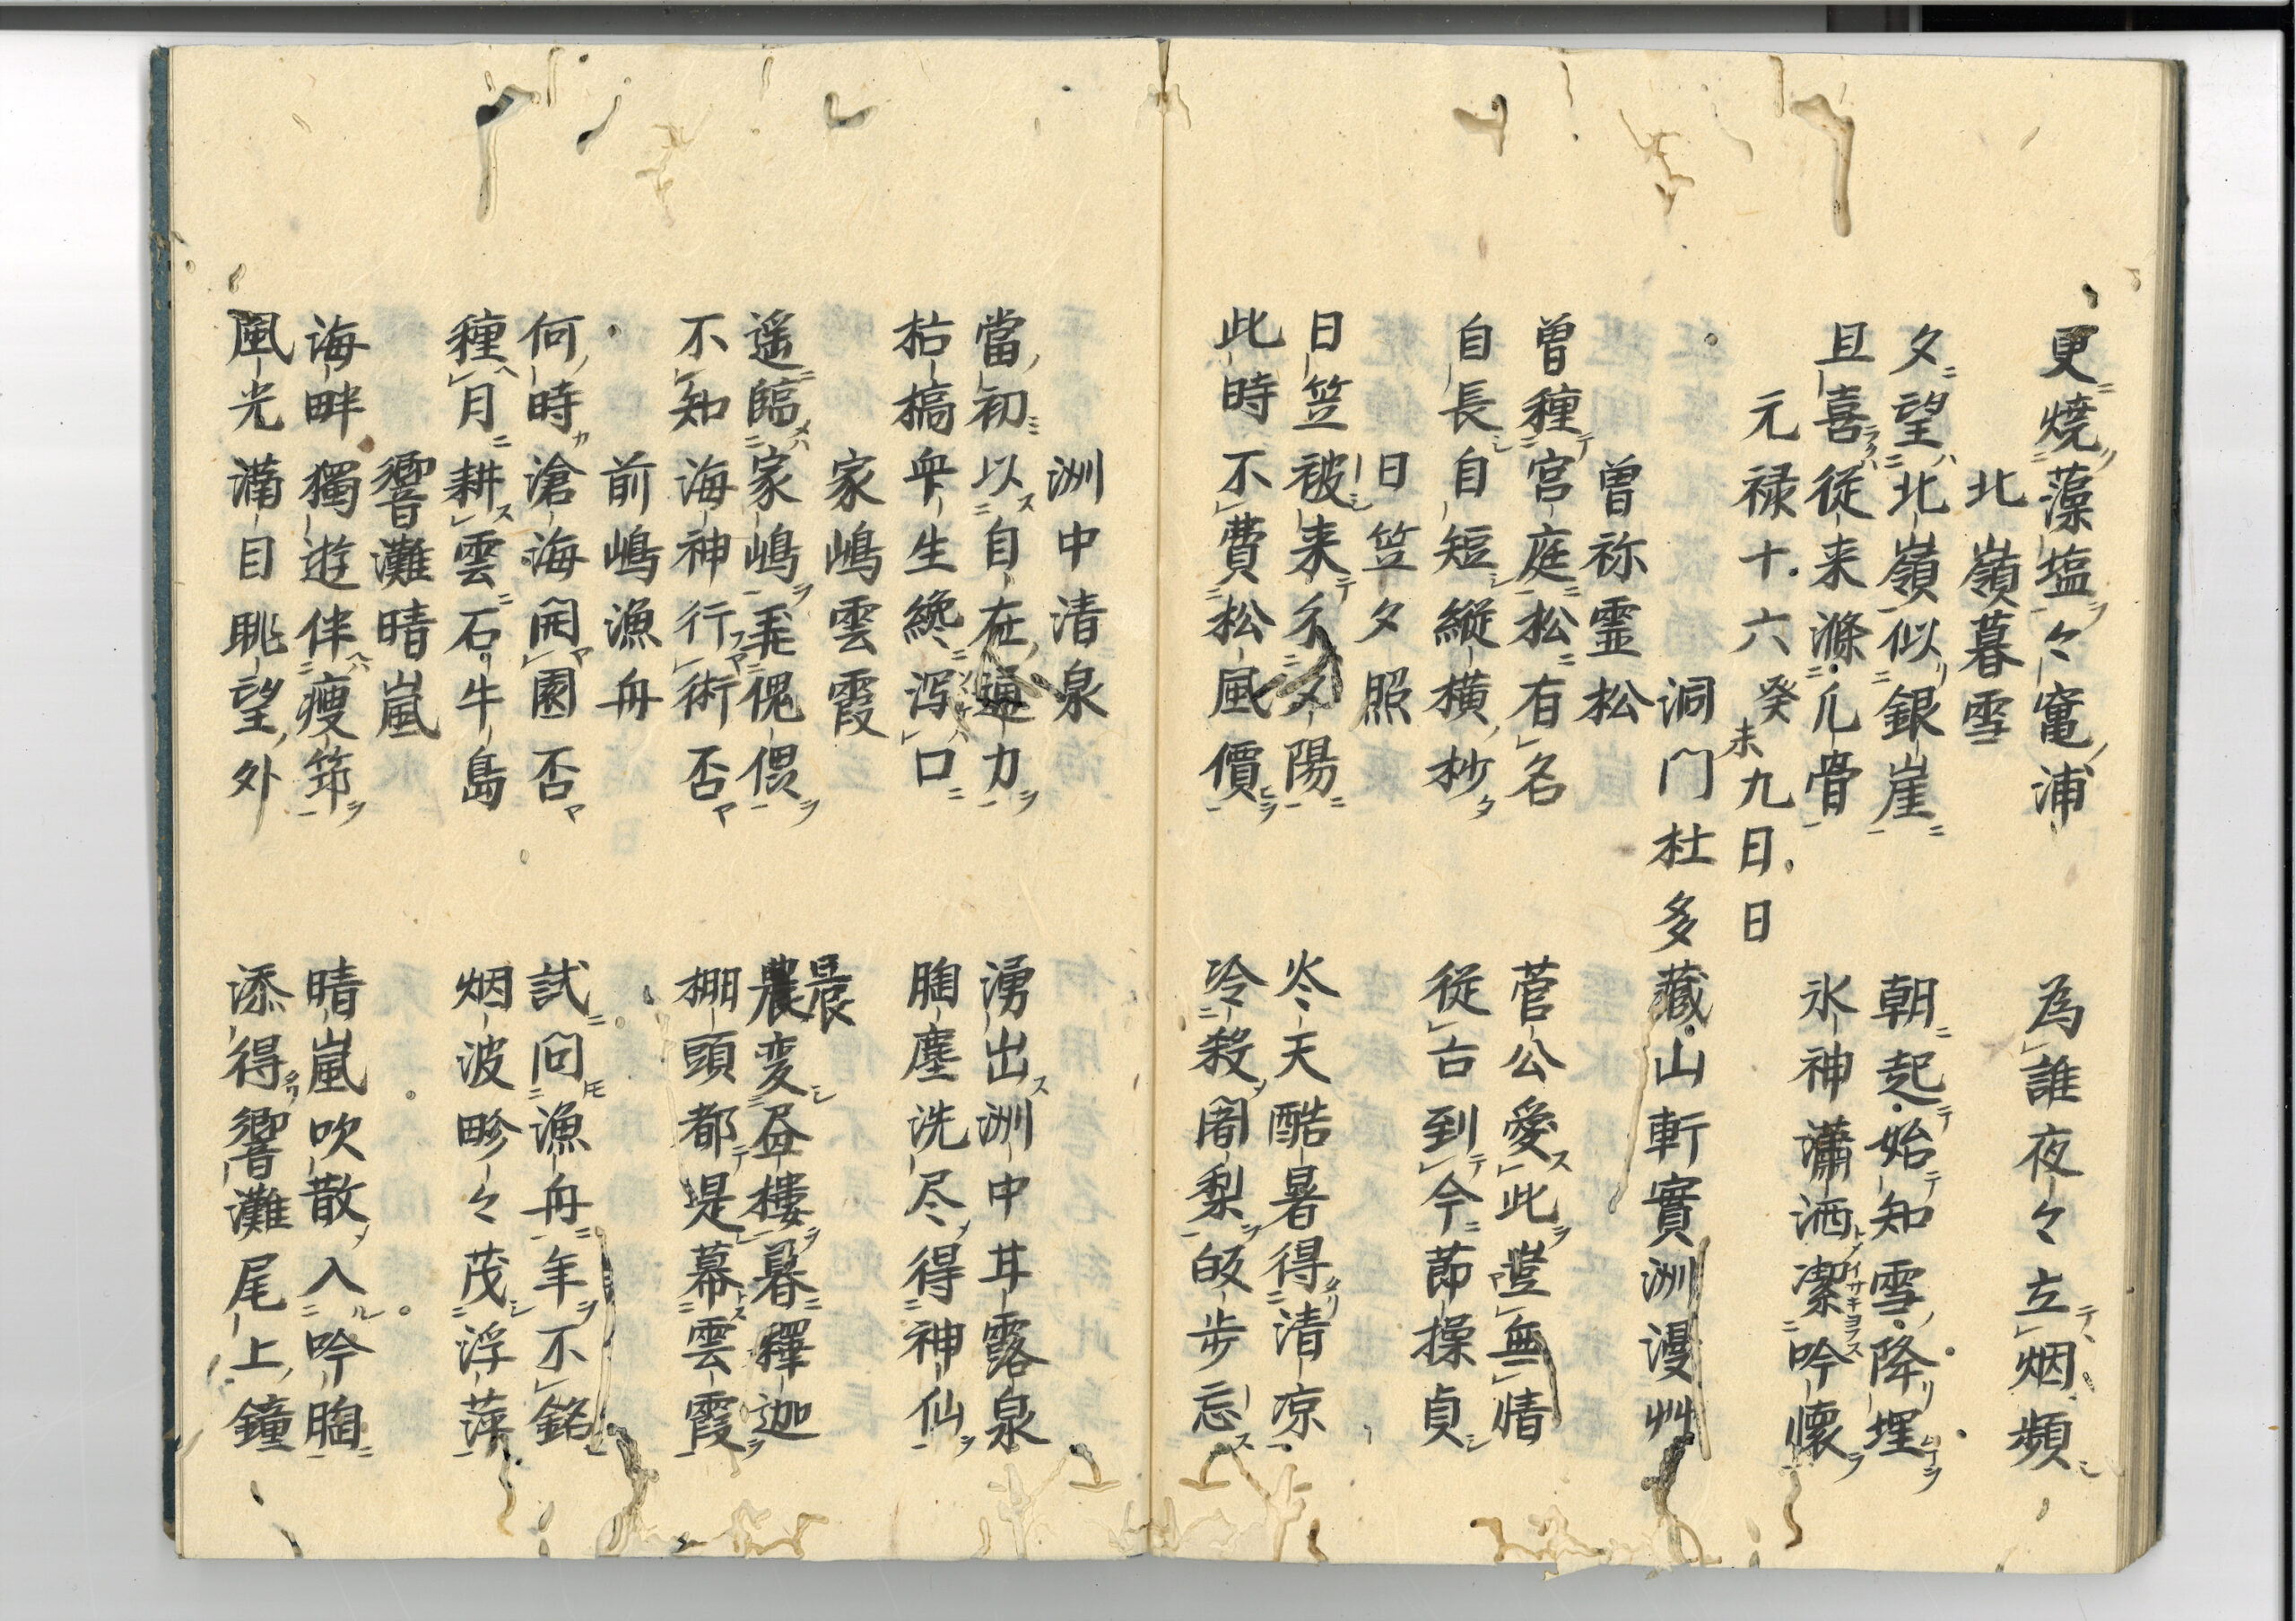 更焼藻塩々竃浦　為誰夜々立烟頻
北嶺暮雪
夕望北嶺似銀崖　朝起始知雪降埋
且喜従来滌凡骨　氷神瀟洒潔吟懐
元禄十六癸未九日日
洞門杜多蔵山軒實洲漫艸
曽祢霊松
曽種宮庭松有名　菅公愛此豈無情
自長自短縦横抄　従古到今節操貞
日笠夕照
日笠被来夕陽　炎天酷暑得清凉
此時不費松風價　冷殺闍梨皈歩忘
洲中清泉
當初以自在通力　湧出洲中甘露泉
枯槁衆生纔瀉口　胸塵洗尽得神仙
家嶋雲霞
遥臨家嶋弄傀偎　農晨変蜃樓暮釋迦
不知海神行術否　棚頭都是幕雲霞
前嶋漁舟
何時滄海開園否　試問漁舟年不銘
種月耕雲石牛島　烟波畛々茂浮萍
響灘晴嵐
海畔獨遊伴痩笻　晴嵐吹散入吟胸
風光満目眺望外　添得響灘尾上鐘